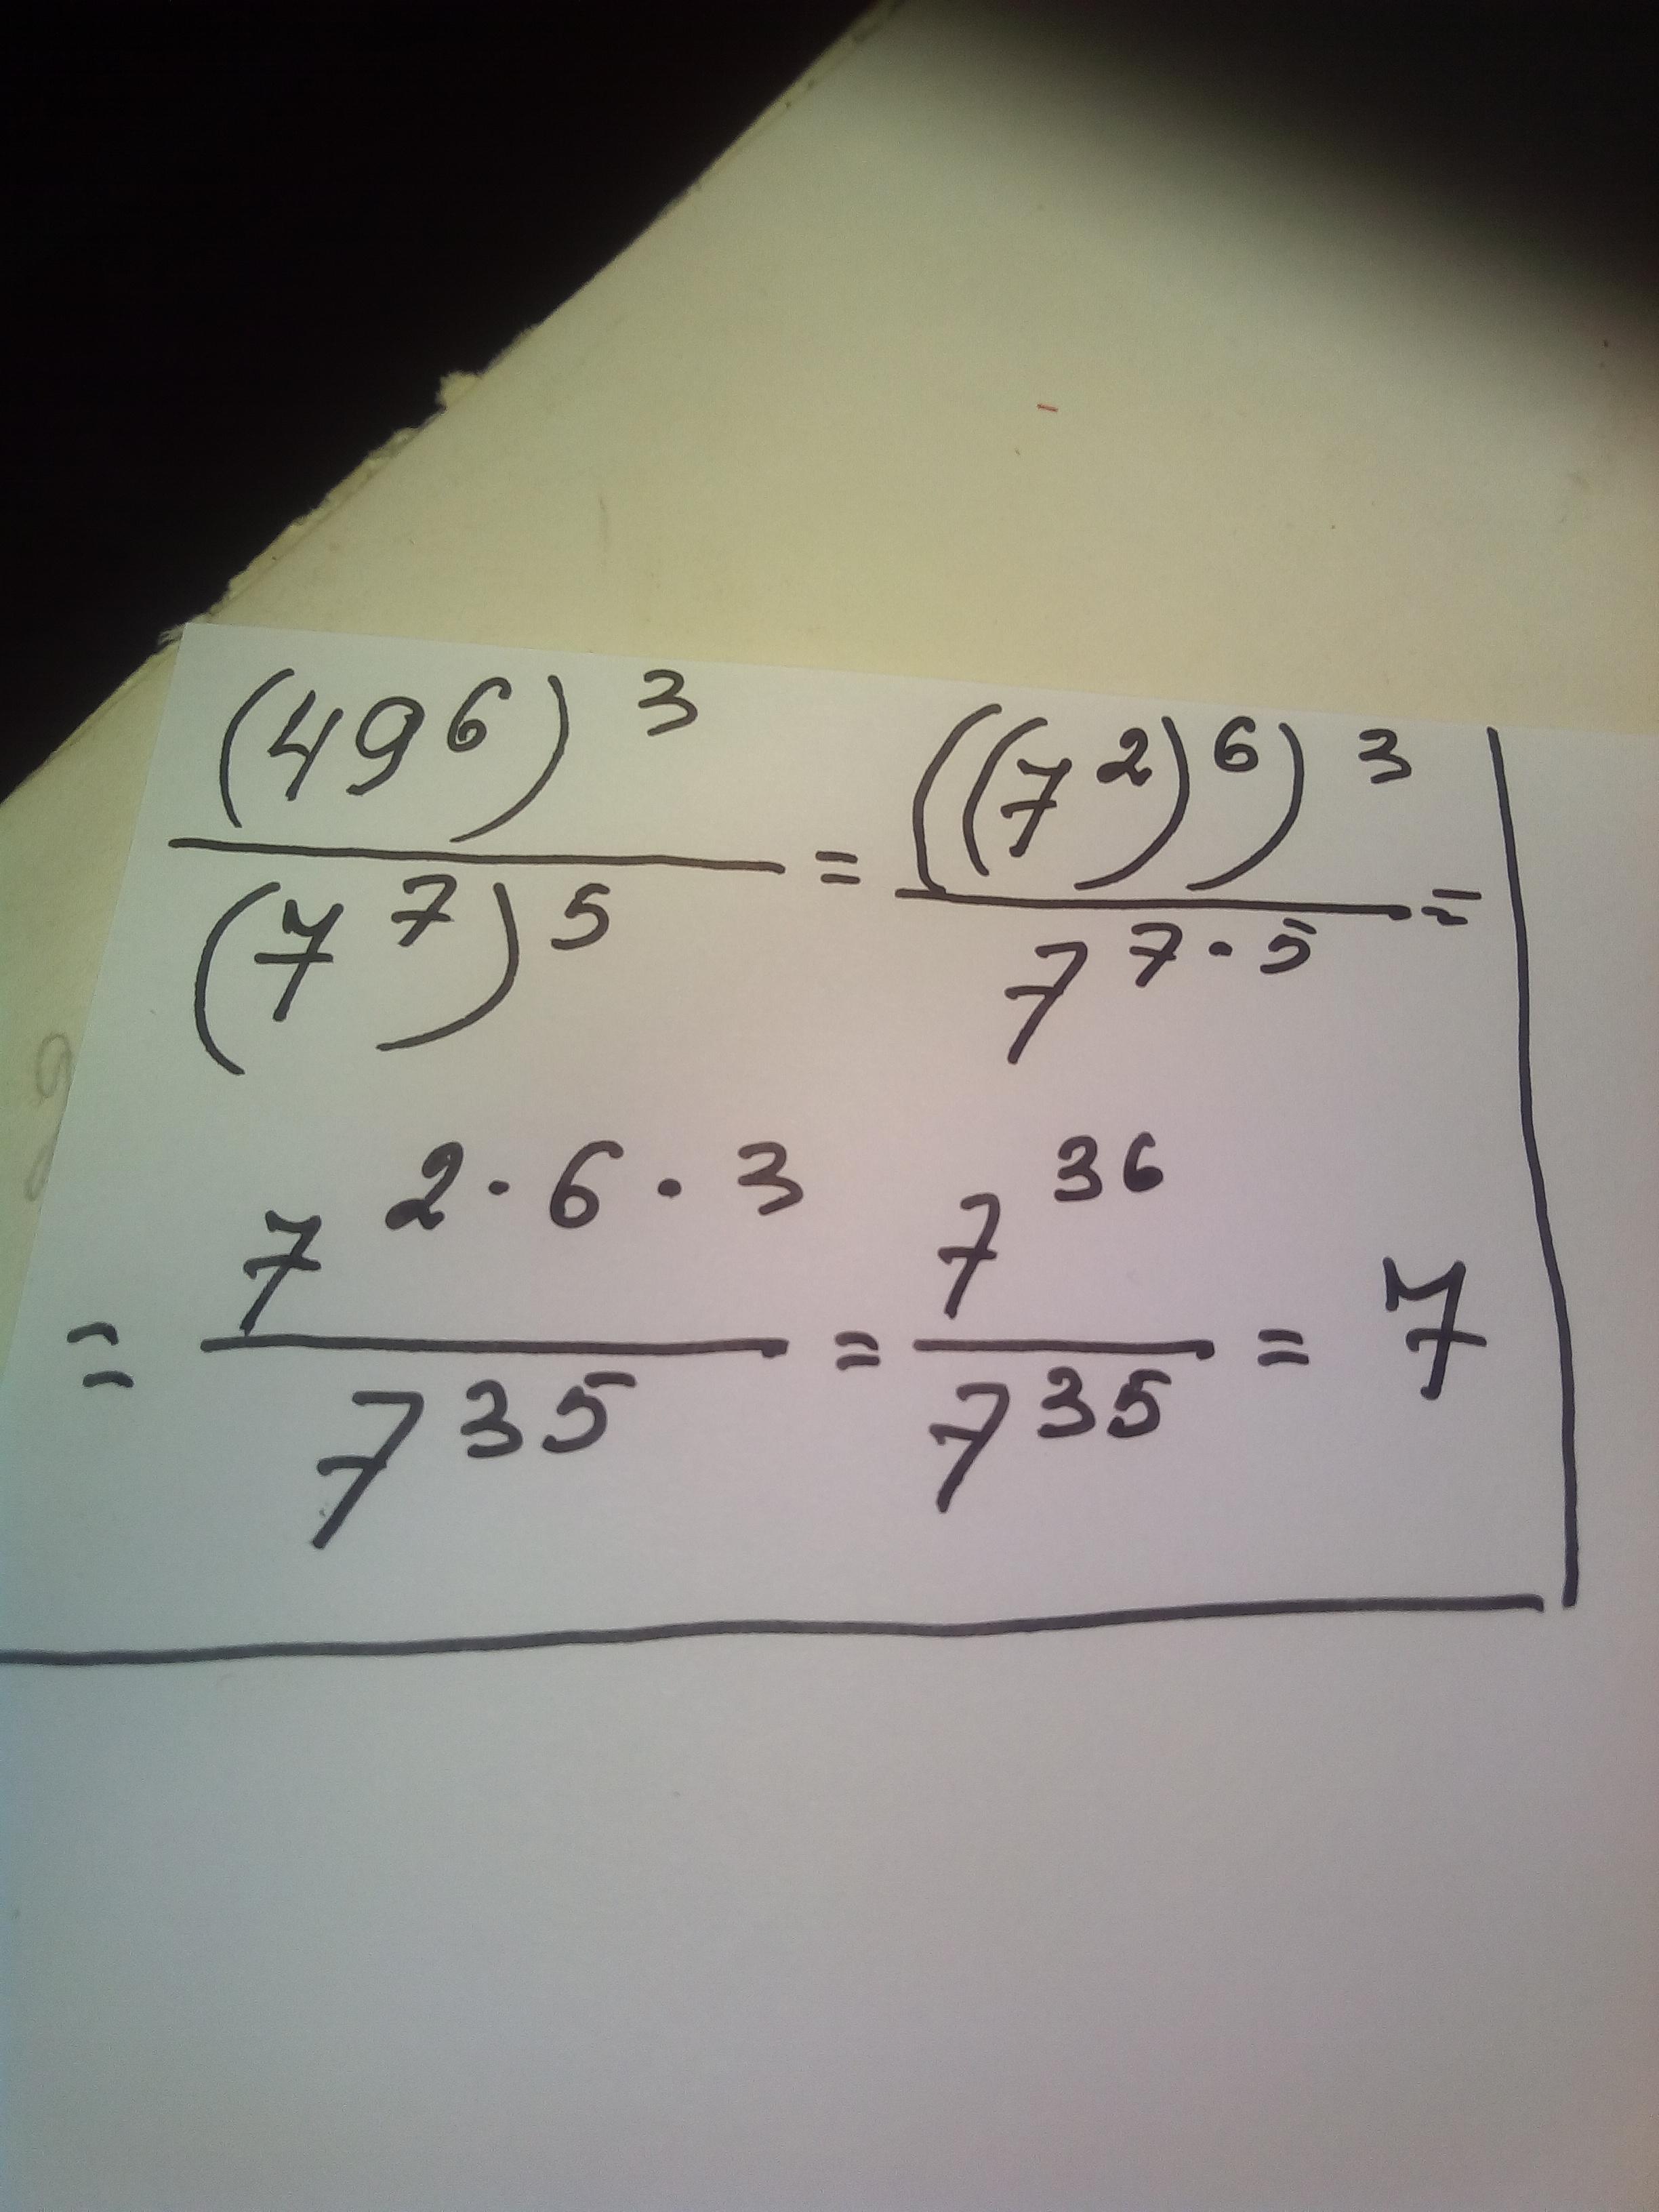 (49⁶)³ / (7⁷)⁵ = ((7²)⁶)³ / 7⁷·⁵ =
= 7²·⁶·³ / 7³⁵ = 7³⁶ / 7³⁵ = 7